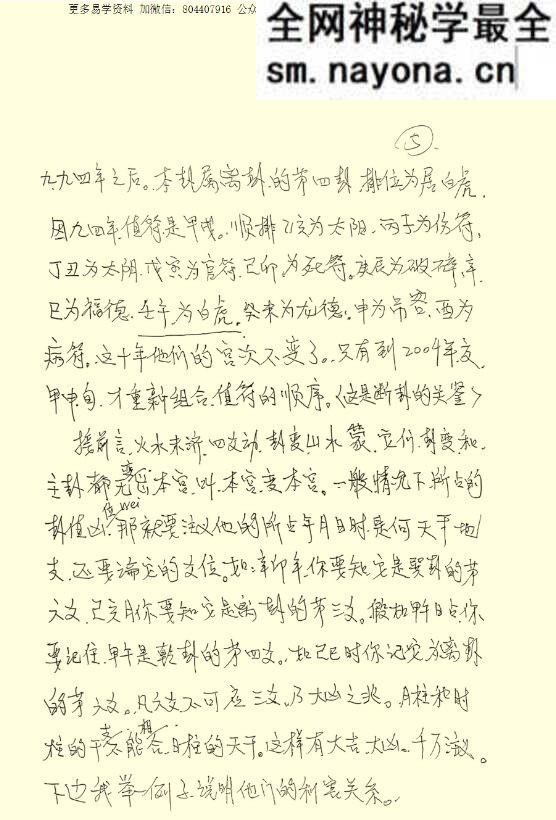 更多易学资料 加微信：804407916 公众
全网神秘学最全
sm.nayona.cn
5
九九四年之后。本卦属离卦的第四卦.排位为居白虎.
因九四年值符是甲戌。顺排乙亥为太阳.丙子为伤符,
丁丑为太阴.戊寅为官符.己卯为死符。庚辰为破碎,辛
巳为福德.壬午为白虎。癸未为龙德。申为吊客.酉为
病符。这十年他们的宫次不变了。只有到2004年交
甲申旬.才重新组合.值符的顺序。<这是断卦的关鉴>
接前言.火水未济.四爻动.卦变山水蒙.它们.卦变和
主卦都变本宫.叫.本宫变本宫。一般情况下所占的
卦值凶.位wei那就要注议他的所占年月日时.是何天干地
支.还要论它的爻位。如:辛卯年.你要知它是巽卦的第
六爻.己亥月你要知它是离卦的第三爻。假如甲午日占.你
要记住.甲午是乾卦的第四爻。如己巳时你记它为离卦
的第六爻。凡六爻不可应三爻。乃大凶之兆。月柱和时
柱的干支不能相合.日柱的天干。这样有大吉.大凶。千万注议。
下边我举一例子.说明他们的利害关系。